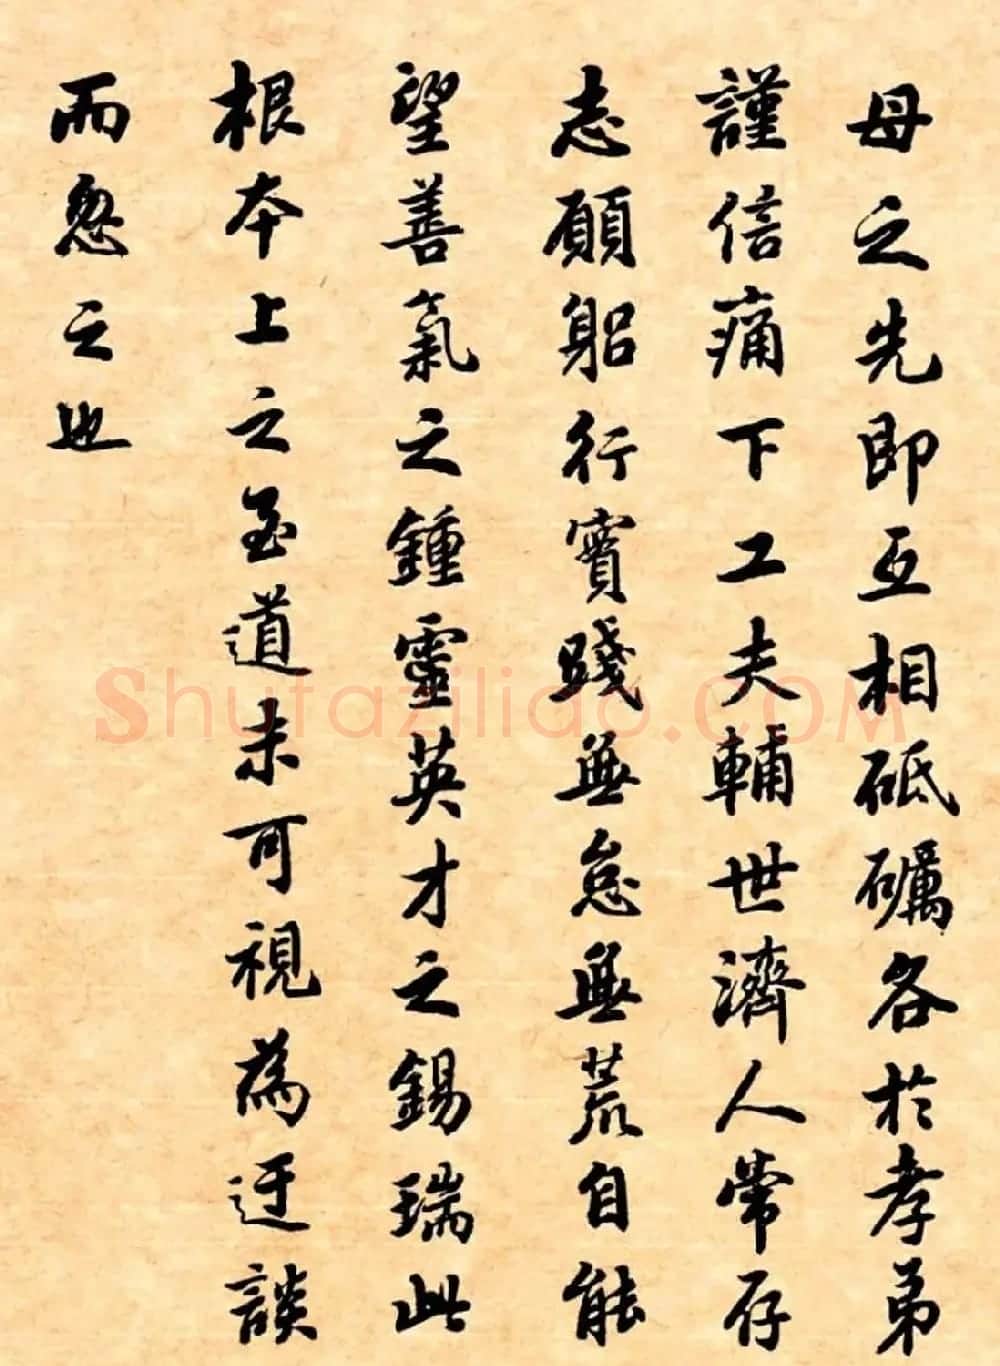 母之先即互相砥礪各於孝弟
謹信痛下工夫輔世濟人常存
志願躬行實踐無怠無荒自能
望善氣之鍾靈英才之錫瑞此
根本上之至道未可視為迂談
而忽之也
Shufaziliao.COM